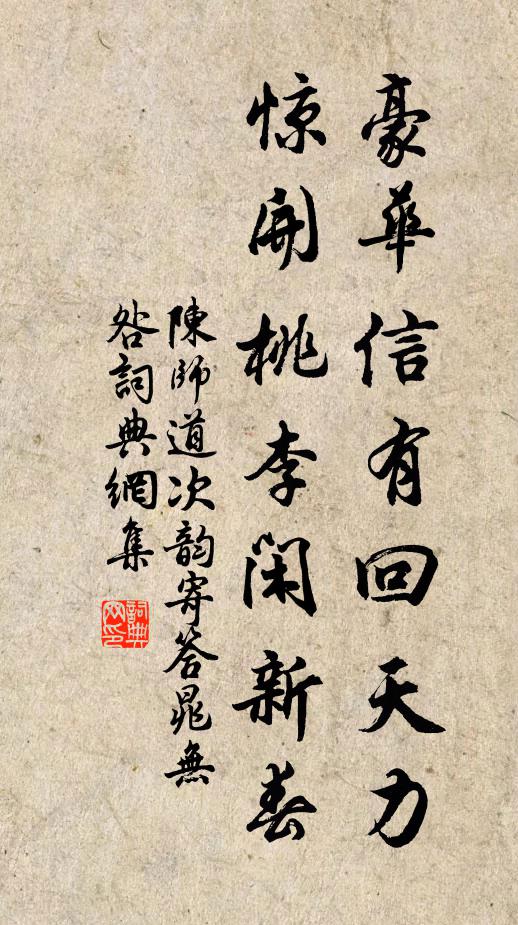 豪華信有回天力
惊開桃李鬧新春
陳師道次韵寄答晁無
咎詞典網集
詞典网印